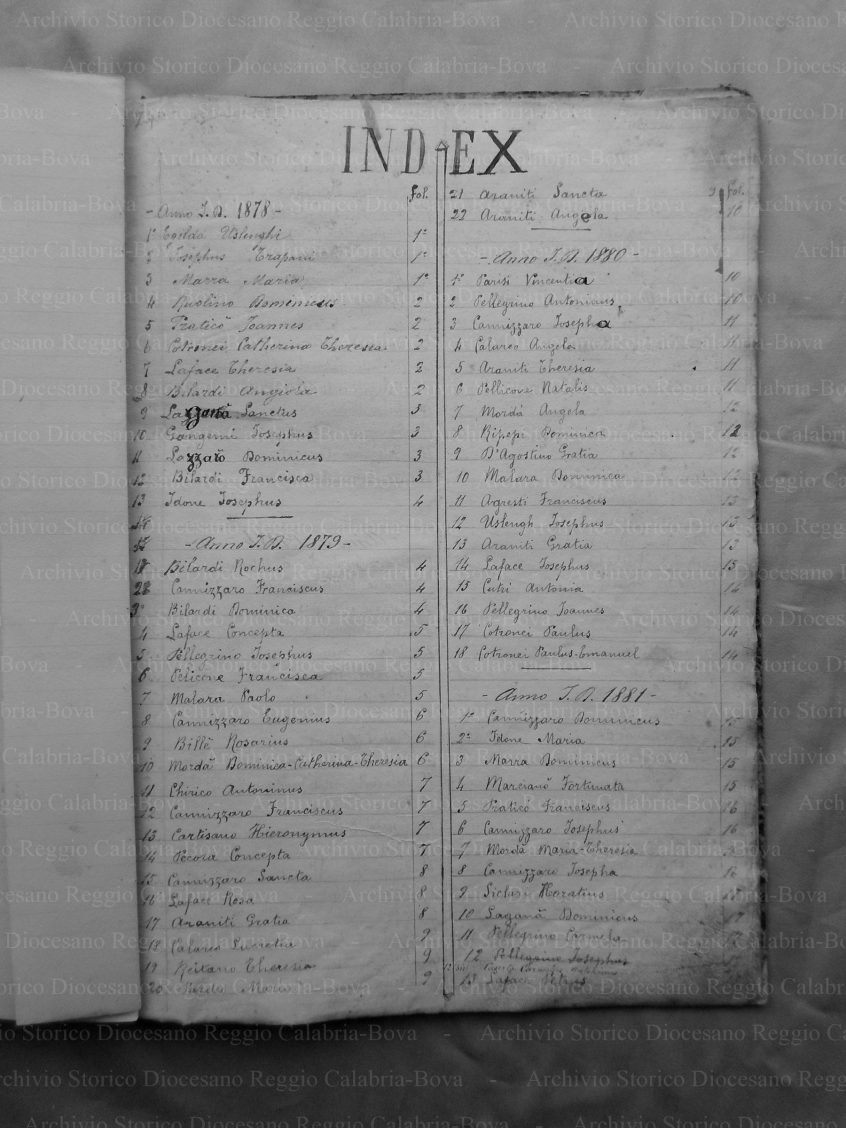 INDEX
Fol.
- Anno J. D. 1878 -
1° Egilda Uslenghi 1°
2 Josephus Trapani 1°
3 Marra Maria 1°
4 Domenicus 2
5 Praticò Joannes 2
6 Cotronei Catherina Theresia 2
7 Laface Theresia 2
8 Bilardi Angiola 2
9 Lazzarò Sanctus 3
10 Gangemi Josephus 3
11 Lazzarò Dominicus 3
12 Bilardi Francisca 3
13 Idone Josephus 4
- Anno J. D. 1879 -
Bilardi Rochus 4
Cannizzaro Franciscus 4
Bilardi Dominica 4
4 Laface Concepta 5
5 Pellegrino Josephus 5
6 Pelicone Francisca 5
7 Malara Paolo 5
8 Cannizzaro Eugenius 6
9 Billè Rosarius 6
10 Mordà Dominica-Catherina-Theresia 6
11 Chirico Antoninus 7
12 Cannizzaro Franciscus 7
13 Cartisano Hieronymus 7
14 Pecora Concepta 7
15 Cannizzaro Sancta 8
16 Laface Rosa 8
17 Araniti Gratia 8
18 Calarco Lucretia 9
19 Reitano Theresia 9
20 Maria 9
Fol.
21 Araniti Sancta 9
22 Araniti Angela 10
- Anno J. D. 1880 -
1° Parisi Vincentia 10
2 Pellegrino Antoninus 10
3 Cannizzaro Josepha 11
4 Calarco Angela 11
5 Araniti Theresia 11
6 Pellicone Natalis 11
7 Mordà Angela 12
8 Ripepi Dominica 12
9 D'Agostino Gratia 12
10 Malara Dominica 12
11 Agresti Franciscus 13
12 Uslengh Josephus 13
13 Araniti Gratia 13
14 Laface Josephus 13
15 Cutrì Antonia 14
16 Pellegrino Joannes 14
17 Cotronei Paulus 14
18 Cotronei Paulus-Emanuel 14
- Anno J. D. 1881 -
1° Cannizzaro Dominicus 15
2° Idone Maria 15
3 Marra Dominicus 15
4 Marcianò Fortunata 15
5 Praticò Franciscus 16
6 Cannizzaro Josephus 16
7 Mordà Maria-Theresia
8 Cannizzaro Josepha 16
9 Siclari Horatius
10 Laganà Dominicus 17
11 Pellegrino Carmela 17
12 Pellegrino Josephus
13 Laface
Archivio Storico Diocesano Reggio Calabria-Bova